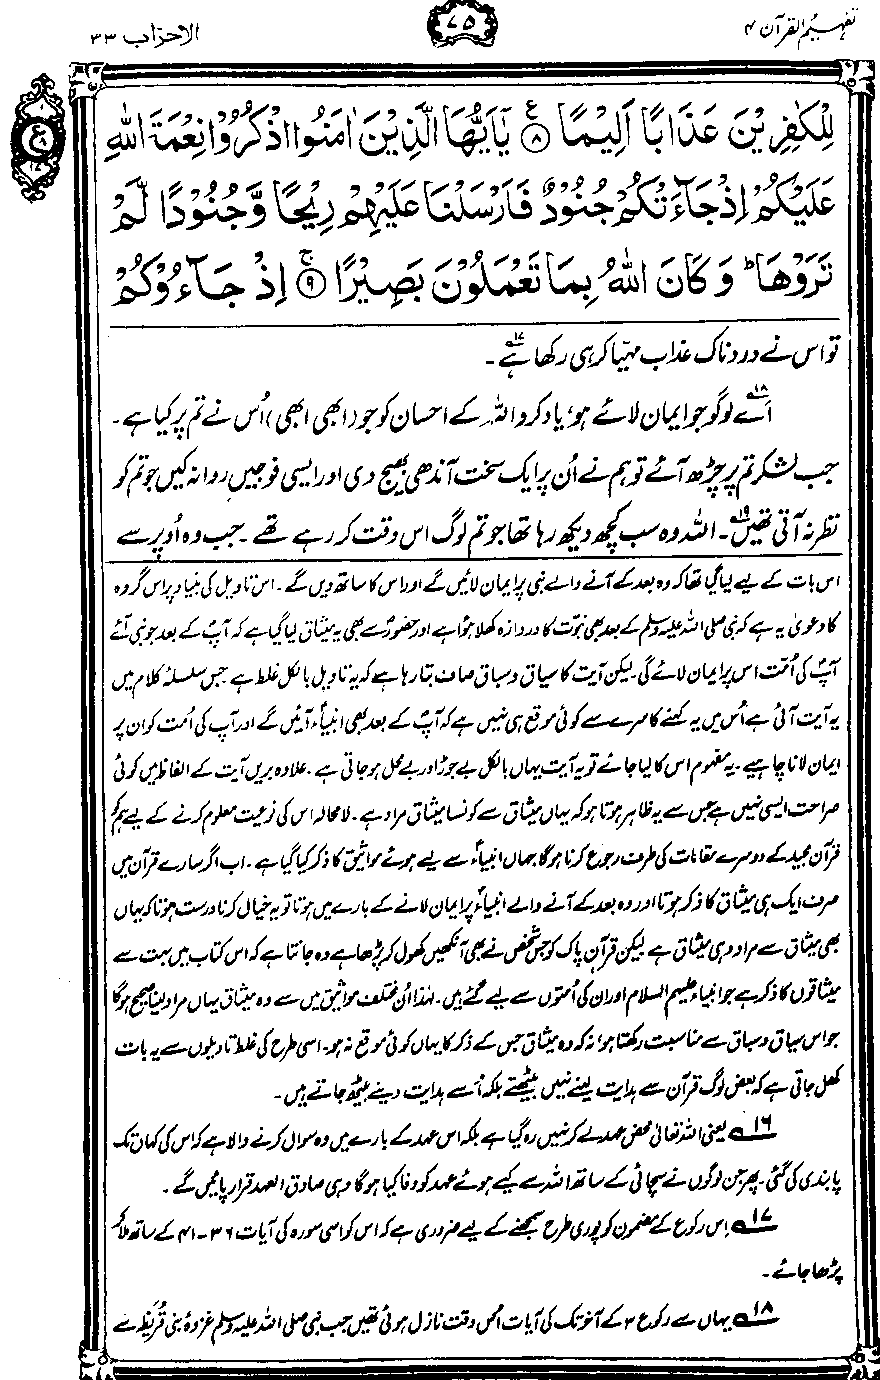 تفہیم القرآن ۴
۷۵
الاحزاب ۳۳
ع
۸
۱۷
لِلْكٰفِرِيْنَ عَذَابًا اَلِيْمًا ۸ ع يٰۤاَيُّهَا الَّذِيْنَ اٰمَنُوا اذْكُرُوْا نِعْمَةَ اللّٰهِ
عَلَيْكُمْ اِذْ جَآءَتْكُمْ جُنُوْدٌ فَاَرْسَلْنَا عَلَيْهِمْ رِيْحًا وَّجُنُوْدًا لَّمْ
تَرَوْهَا ؕ وَكَانَ اللّٰهُ بِمَا تَعْمَلُوْنَ بَصِيْرًا ۹ ج اِذْ جَآءُوْكُمْ
تو اس نے دردناک عذاب مہیّا کر ہی رکھا ہے۱۷۔
اے۱۸ لوگو جو ایمان لائے ہو، یاد کرو اللہ کے احسان کو جو (ابھی ابھی) اُس نے تم پر کیا ہے۔
جب لشکر تم پر چڑھ آئے تو ہم نے اُن پر ایک سخت آندھی بھیج دی اور ایسی فوجیں روانہ کیں جو تم کو
نظر نہ آتی تھیں۱۹۔ اللہ وہ سب کچھ دیکھ رہا تھا جو تم لوگ اس وقت کر رہے تھے۔ جب وہ اُوپر سے
اس بات کے لیے لیا گیا تھا کہ وہ بعد کے آنے والے نبی پر ایمان لائیں گے اور اس کا ساتھ دیں گے۔ اس تاویل کی بنیاد پر اس گروہ
کا دعویٰ یہ ہے کہ نبی صلی اللہ علیہ وسلم کے بعد بھی نبوّت کا دروازہ کھلا ہوا ہے اور حضورؐ سے بھی یہ میثاق لیا گیا ہے کہ آپؐ کے بعد جو نبی آئے
آپؐ کی اُمّت اس پر ایمان لائے گی۔ لیکن آیت کا سیاق و سباق صاف بتا رہا ہے کہ یہ تاویل بالکل غلط ہے۔ جس سلسلۂ کلام میں
یہ آیت آئی ہے اُس میں یہ کہنے کا سرے سے کوئی موقع ہی نہیں ہے کہ آپؐ کے بعد بھی انبیاءؑ آئیں گے اور آپ کی اُمت کو ان پر
ایمان لانا چاہیے۔ یہ مفہوم اس کا لیا جائے تو یہ آیت یہاں بالکل بے جوڑ اور بے محل ہو جاتی ہے۔ علاوہ بریں آیت کے الفاظ میں کوئی
صراحت ایسی نہیں ہے جس سے یہ ظاہر ہوتا ہو کہ یہاں میثاق سے کونسا میثاق مراد ہے۔ لامحالہ اس کی نوعیت معلوم کرنے کے لیے ہم کو
قرآن مجید کے دوسرے مقامات کی طرف رجوع کرنا ہو گا جہاں انبیاءؑ سے لیے ہوئے مواثیق کا ذکر کیا گیا ہے۔ اب اگر سارے قرآن میں
صرف ایک ہی میثاق کا ذکر ہوتا اور وہ بعد کے آنے والے انبیاءؑ پر ایمان لانے کے بارے میں ہوتا تو یہ خیال کرنا درست ہوتا کہ یہاں
بھی میثاق سے مراد وہی میثاق ہے۔ لیکن قرآن پاک کو جس شخص نے بھی آنکھیں کھول کر پڑھا ہے وہ جانتا ہے کہ اس کتاب میں بہت سے
میثاقوں کا ذکر ہے جو انبیاء علیہم السلام اور ان کی اُمتوں سے لیے گئے ہیں۔ لہٰذا اُن مختلف مواثیق میں سے وہ میثاق یہاں مراد لینا صحیح ہو گا
جو اس سیاق و سباق سے مناسبت رکھتا ہو، نہ کہ وہ میثاق جس کے ذکر کا یہاں کوئی موقع نہ ہو۔ اسی طرح کی غلط تاویلوں سے یہ بات
کھل جاتی ہے کہ بعض لوگ قرآن سے ہدایت لینے نہیں بیٹھتے بلکہ اُسے ہدایت دینے بیٹھ جاتے ہیں۔
۱۶؎ یعنی اللہ تعالیٰ محض عہد لے کر نہیں رہ گیا ہے بلکہ اس عہد کے بارے میں وہ سوال کرنے والا ہے کہ اس کی کہاں تک
پابندی کی گئی۔ پھر جن لوگوں نے سچائی کے ساتھ اللہ سے کیے ہوئے عہد کو وفا کیا ہو گا وہی صادق العہد قرار پائیں گے۔
۱۷؎ اس رکوع کے مضمون کو پوری طرح سمجھنے کے لیے ضروری ہے کہ اس کو اسی سورہ کی آیات ۳۶-۴۱ کے ساتھ ملا کر
پڑھا جائے۔
۱۸؎ یہاں سے رکوع ۳ کے آخر تک کی آیات اُس وقت نازل ہوئی تھیں جب نبی صلی اللہ علیہ وسلم غزوۂ بنی قُرَیظہ سے